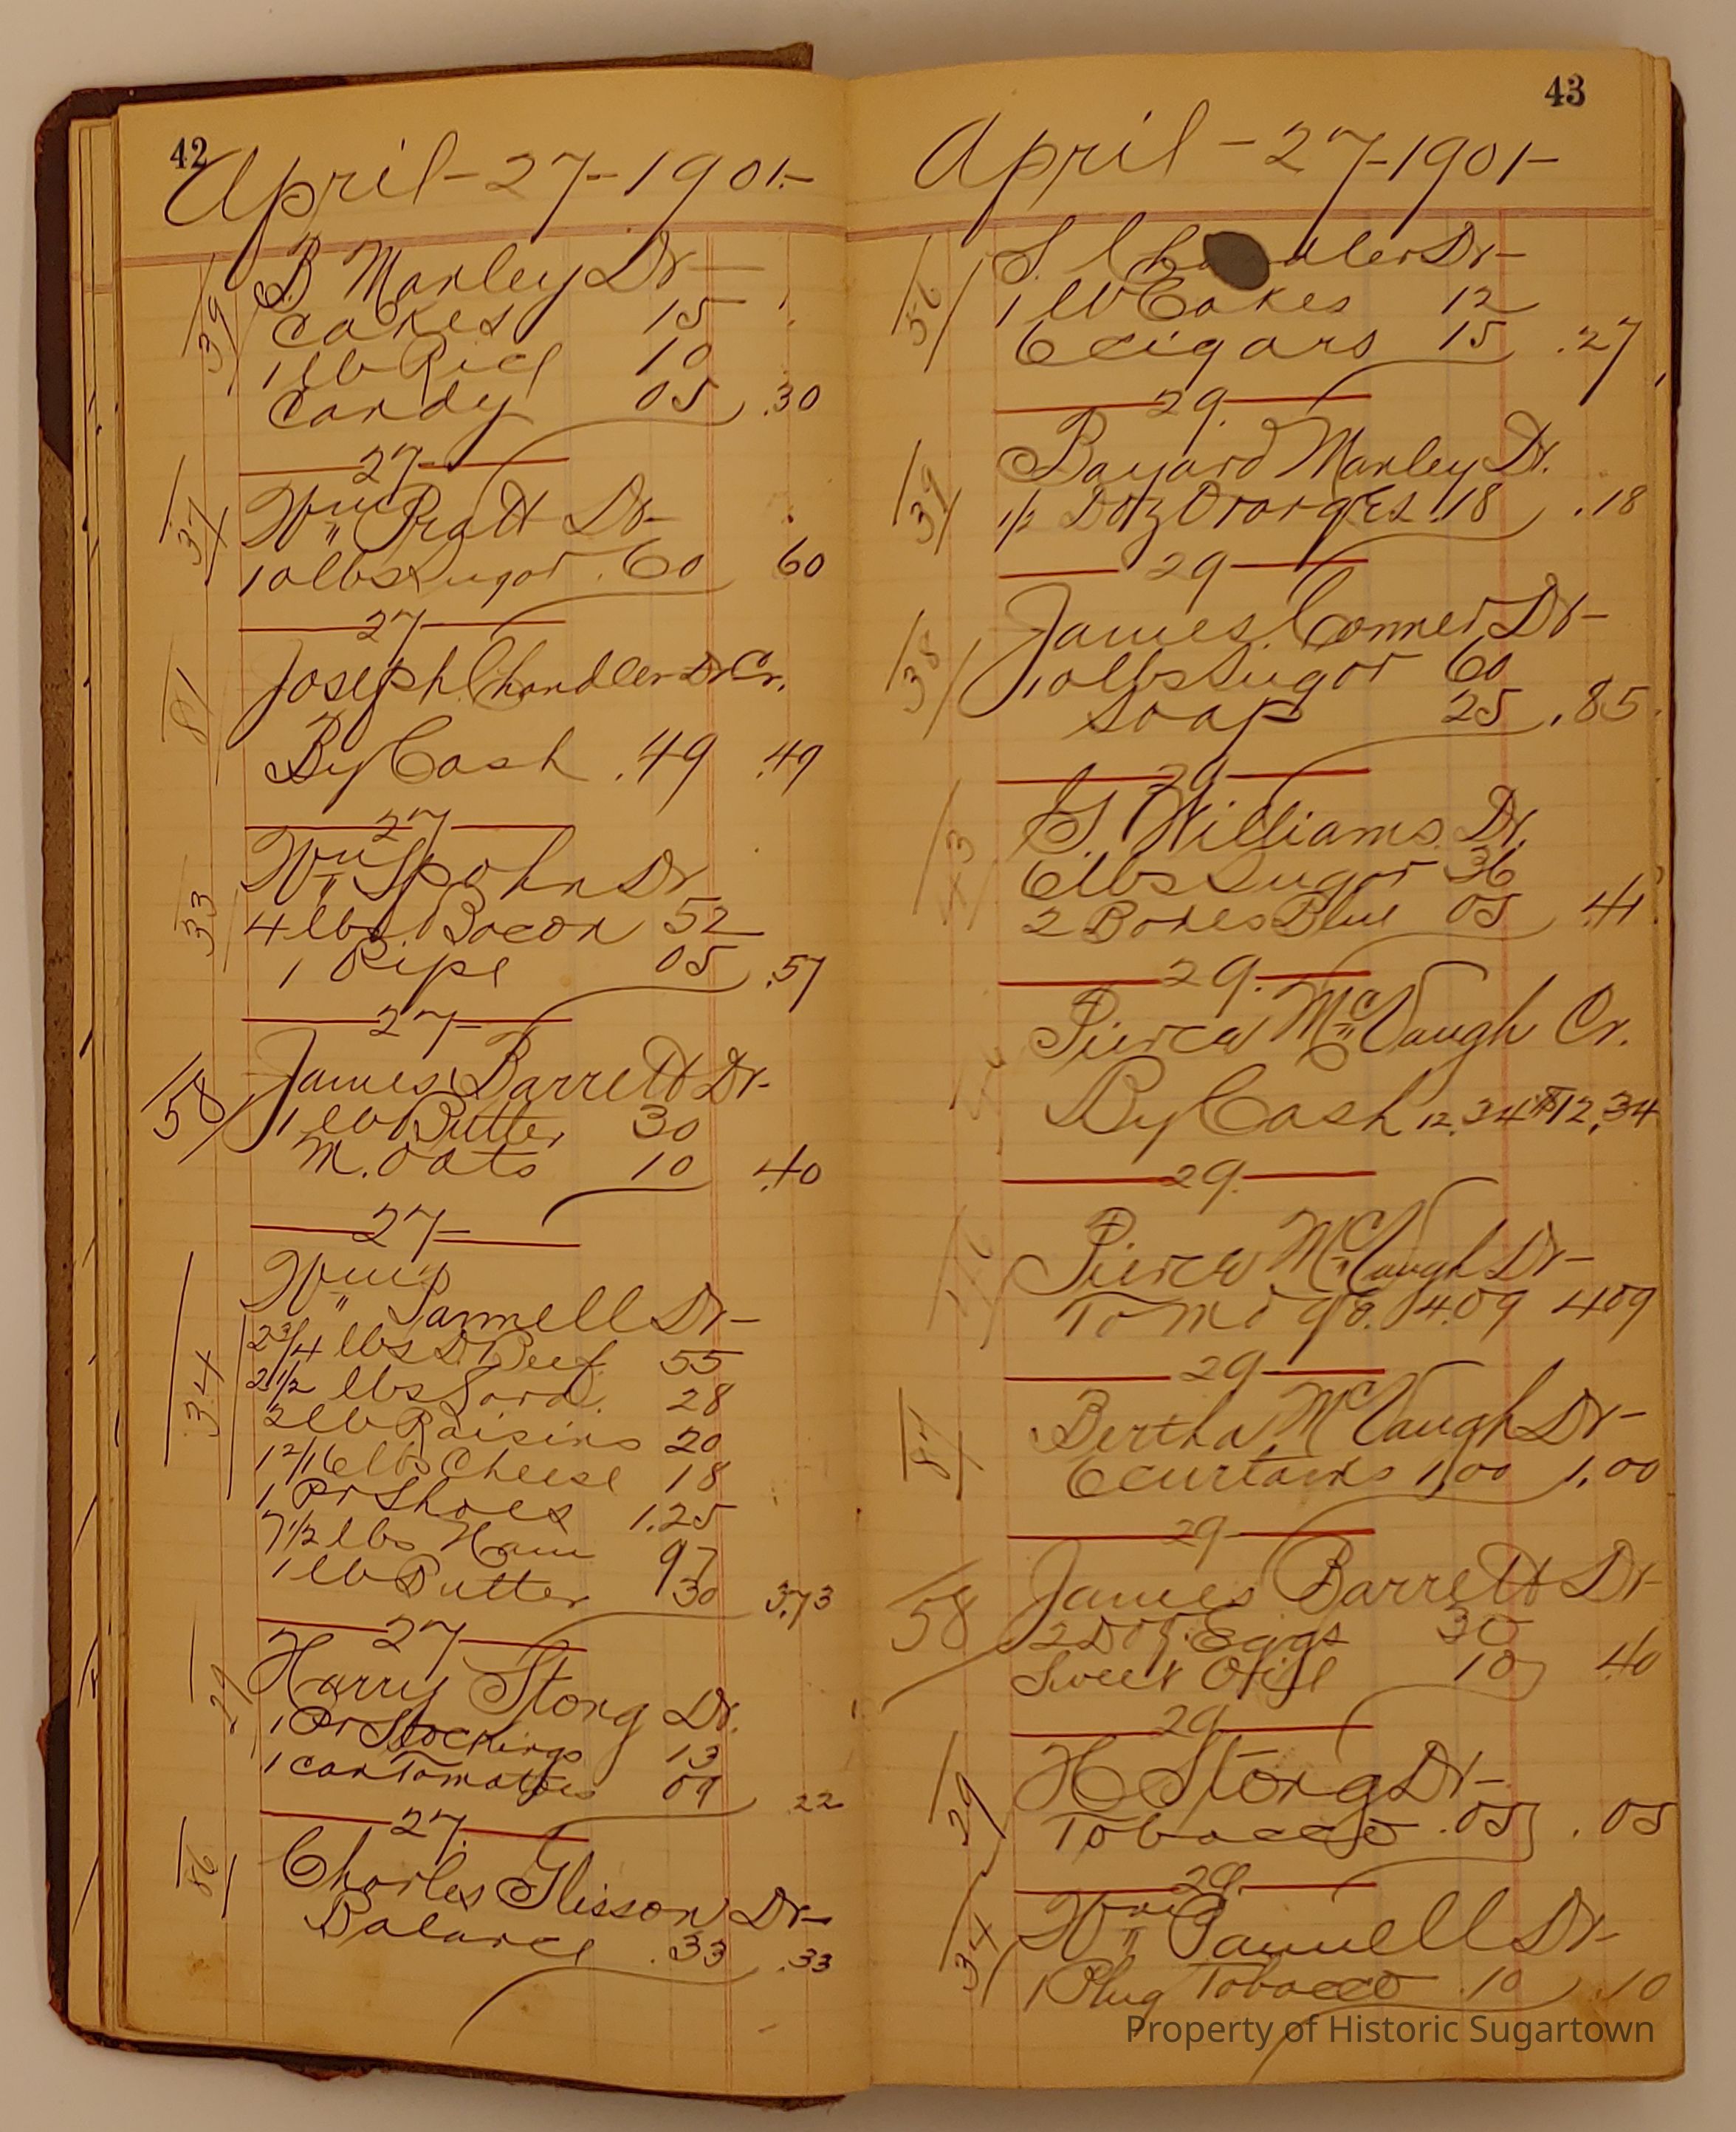 42
April-27-1901-
39
B Marley Dr-
Cakes 15
1 lb Rice 10
Candy 05 .30
27-
37
Wm Pratt Dr-
10 lbs Sugar .60 60
27-
81
Joseph Chandler Dr Cr.
By Cash .49 .49
27-
33
Wm Spohn Dr
4 lbs Bacon 52
1 Pipe 05 .57
27-
58
James Barrett Dr-
1 lb Butter 30
M. Oats 10 .40
27-
34
Wm Pannell Dr-
2 3/4 lbs D. Beef 55
2 1/2 lbs Lard. 28
2 lb Raisins 20
1 2/16 lbs Cheese 18
1 Pr Shoes 1.25
7 1/2 lbs Ham 97
1 lb Butter 30 3.73
27-
29
Harry Stong Dr.
1 Pr Stockings 13
1 can Tomatoes 09 .22
27.
86
Charles Glisson Dr-
Balance .33 .33
43
April-27-1901-
56
S. Ch dler Dr-
1 lb Cakes 12
6 cigars 15 .27
29.
39
Bayard Marley Dr.
1/2 Doz Oranges .18 .18
29
38
James Conner Dr-
10 lbs Sugar 60
Soap 25 .85
29
43
G. Williams Dr.
6 lbs Sugar 36
2 Boxes Blue 05 .41
29.
Pierce McVaugh Cr.
By Cash 12.34 $12.34
29.
Pierce McVaugh Dr-
To Mdge. 4.09 4.09
29
87
Bertha McVaugh Dr-
6 curtains 1,00 1,00
29
58
James Barrett Dr-
2 Doz. Eggs 30
Sweet Oil 10 .40
29
29
H Stong Dr-
Tobacco .05 .05
29.
34
Wm Pannell Dr-
1 Plug Tobacco .10 .10
Property of Historic Sugartown